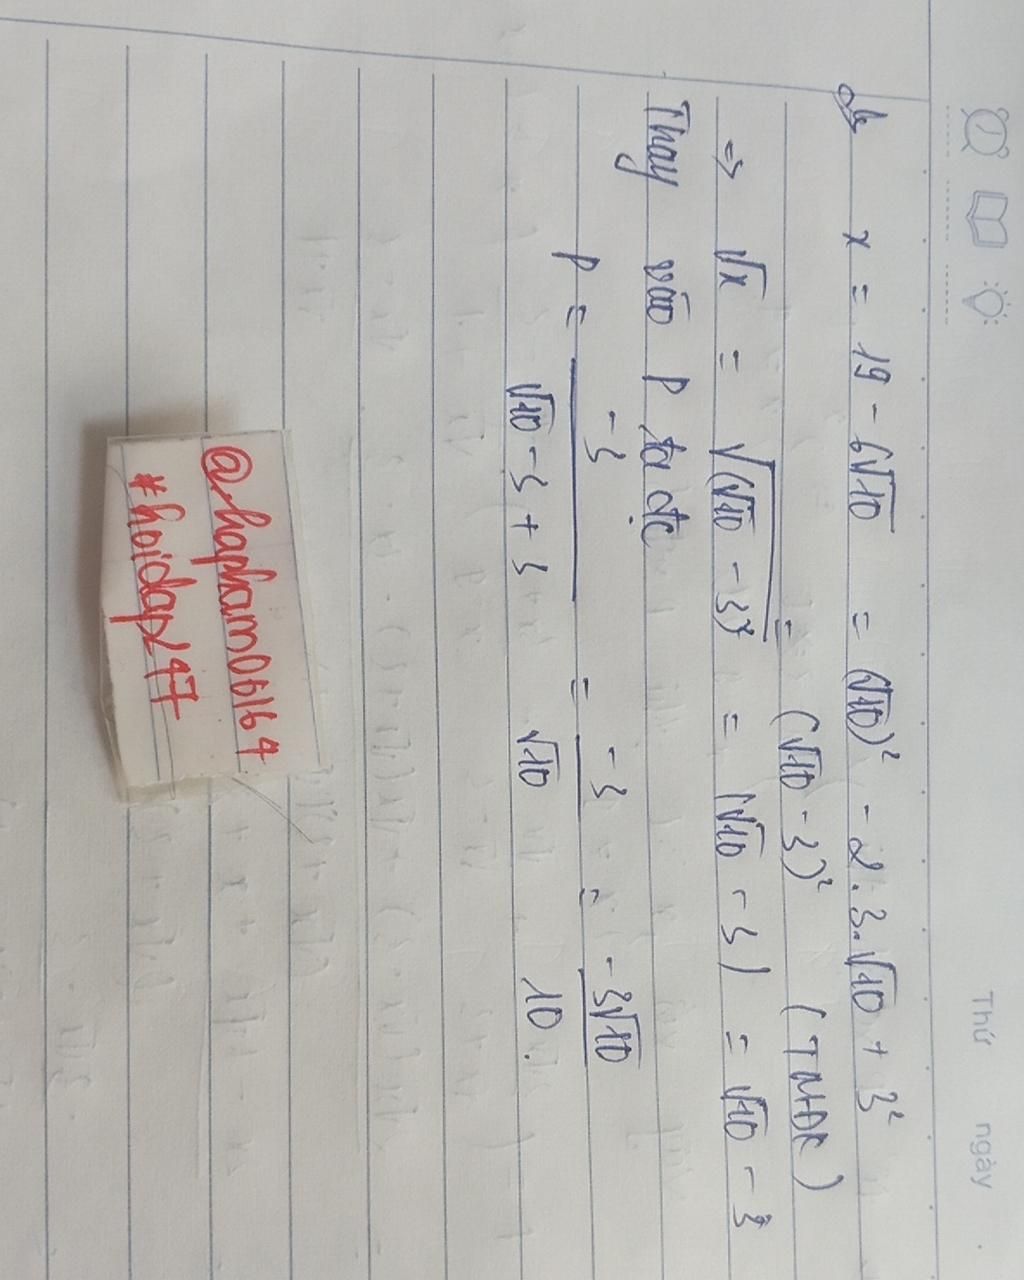 Thứ ngày
b, x = 19 - 6√10 = (√10)² - 2.3.√10 + 3²
= (√10 - 3)² (TMĐK)
=> √x = √(√10 - 3)² = |√10 - 3| = √10 - 3
Thay vào P ta đc
P = -3 / (√10 - 3 + 3) = -3 / √10 = -3√10 / 10.
@hapham06164
#hoidap247